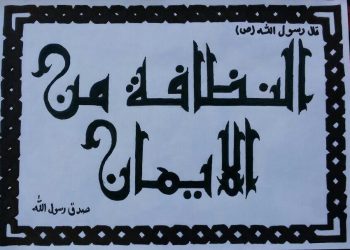 قال رسول الله (ص)
النظافة من
الايمان
صدق رسول الله